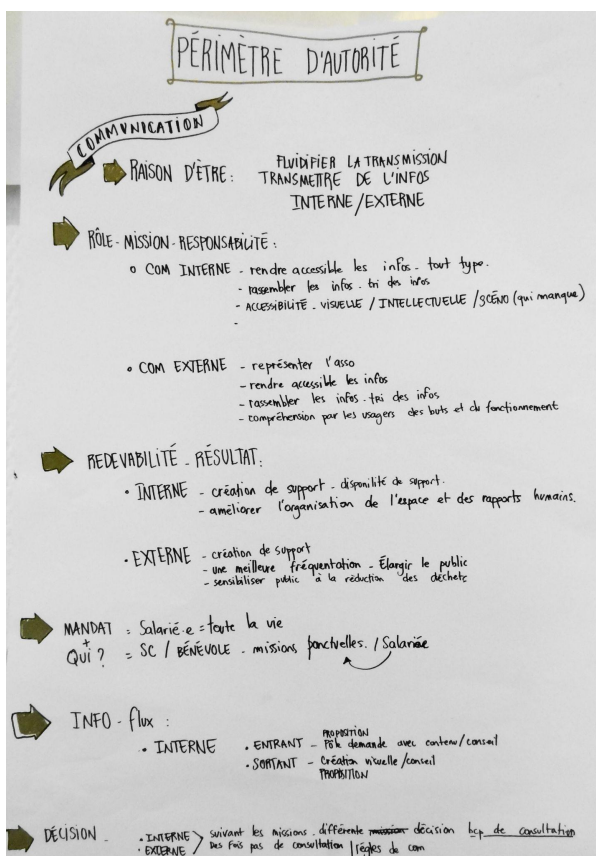 PÉRIMÈTRE D'AUTORITÉ
COMMUNICATION
RAISON D'ÊTRE : FLUIDIFIER LA TRANSMISSION
TRANSMETTRE DE L'INFOS
INTERNE/EXTERNE
RÔLE - MISSION - RESPONSABILITÉ :
COM INTERNE - rendre accessible les infos - tout type.
- rassembler les infos - tri des infos
- ACCESSIBILITÉ - VISUELLE / INTELLECTUELLE / SCÉNO (qui manque)
-
COM EXTERNE - représenter l'asso
- rendre accessible les infos
- rassembler les infos - tri des infos
- compréhension par les usagers des buts et du fonctionnement
REDEVABILITÉ - RÉSULTAT :
• INTERNE - création de support - disponilité de support.
- améliorer l'organisation de l'espace et des rapports humains.
• EXTERNE - création de support
- une meilleure fréquentation - Élargir le public
- sensibiliser public à la réduction des déchets
MANDAT = Salarié·e = toute la vie
+
QUI ? = SC / BÉNÉVOLE - missions ponctuelles. / Salariée
INFO - flux :
PROPOSITION
• INTERNE • ENTRANT - Pôle demande avec contenu/conseil
• SORTANT - Création visuelle/conseil
PROPOSITION
DÉCISION - • INTERNE > suivant les missions - différente mission décision bcp de consultation
• EXTERNE Des fois pas de consultation | règles de com